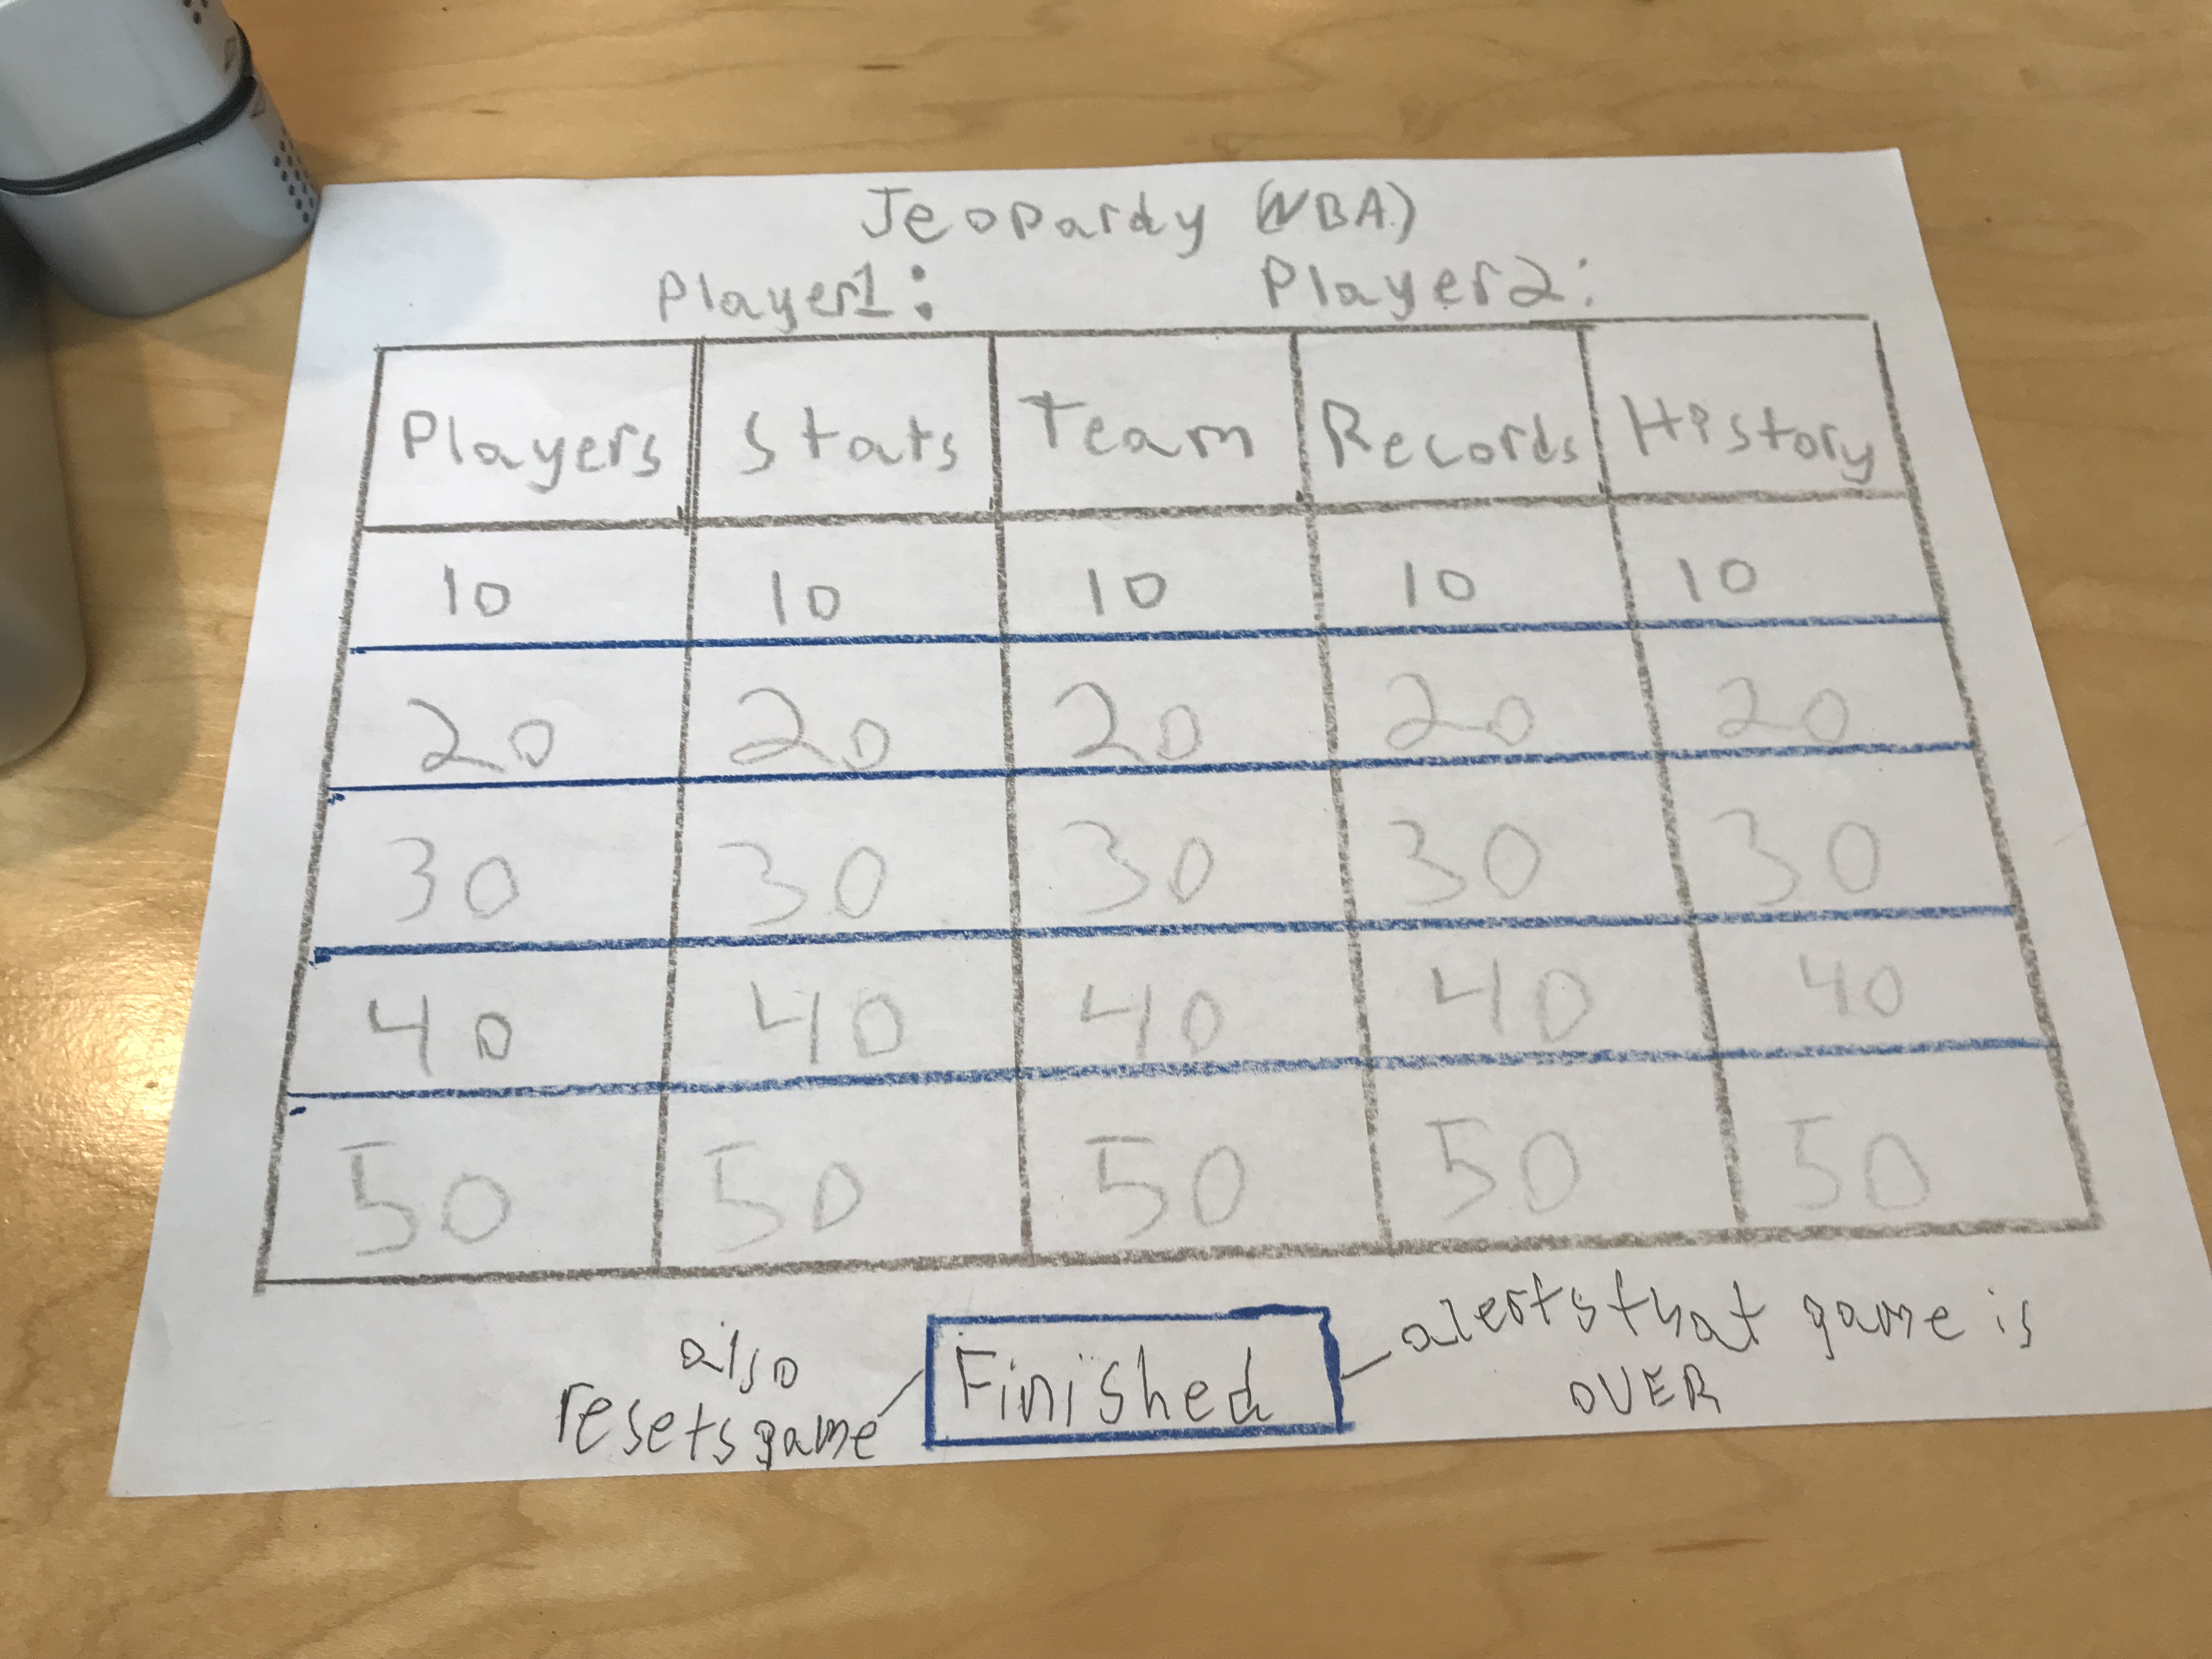 Jeopardy (NBA)
Player1: Player2:
Players Stats Team Records History
10 10 10 10 10
20 20 20 20 20
30 30 30 30 30
40 40 40 40 40
50 50 50 50 50
also
resets game
Finished
alerts that game is
OVER